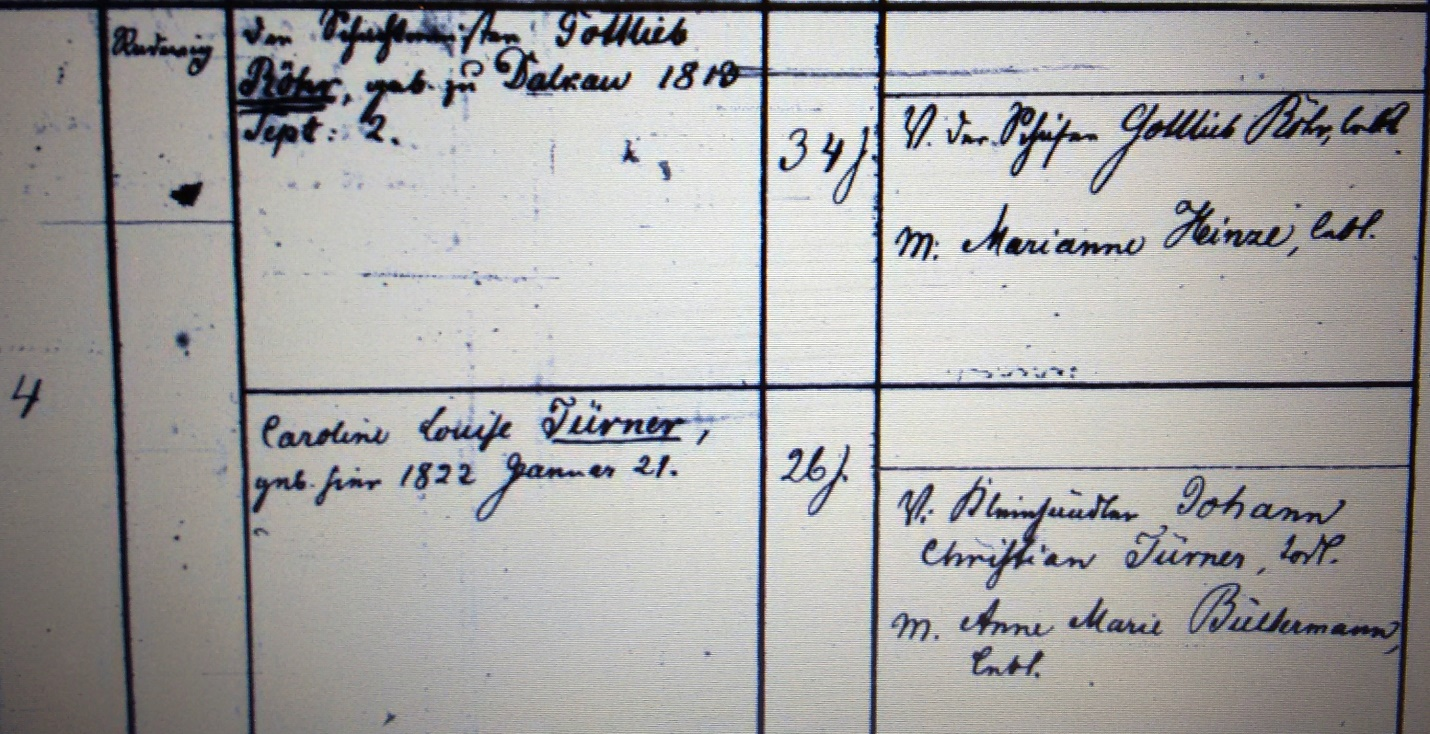 4
der Schachtmeister Gottlieb
Röhr, geb. zu Dalkau 1813
Sept: 2.
34 J.
V. der Schäfer Gottlieb Röhr, lebt
M: Marianne Heinze, lebt.
Caroline Louise Türner,
geb. hier 1822 Januar 21.
26 J.
V: Kleinhändler Johann
Christian Türner, todt.
M. Anne Marie Bültermann,
lebt.